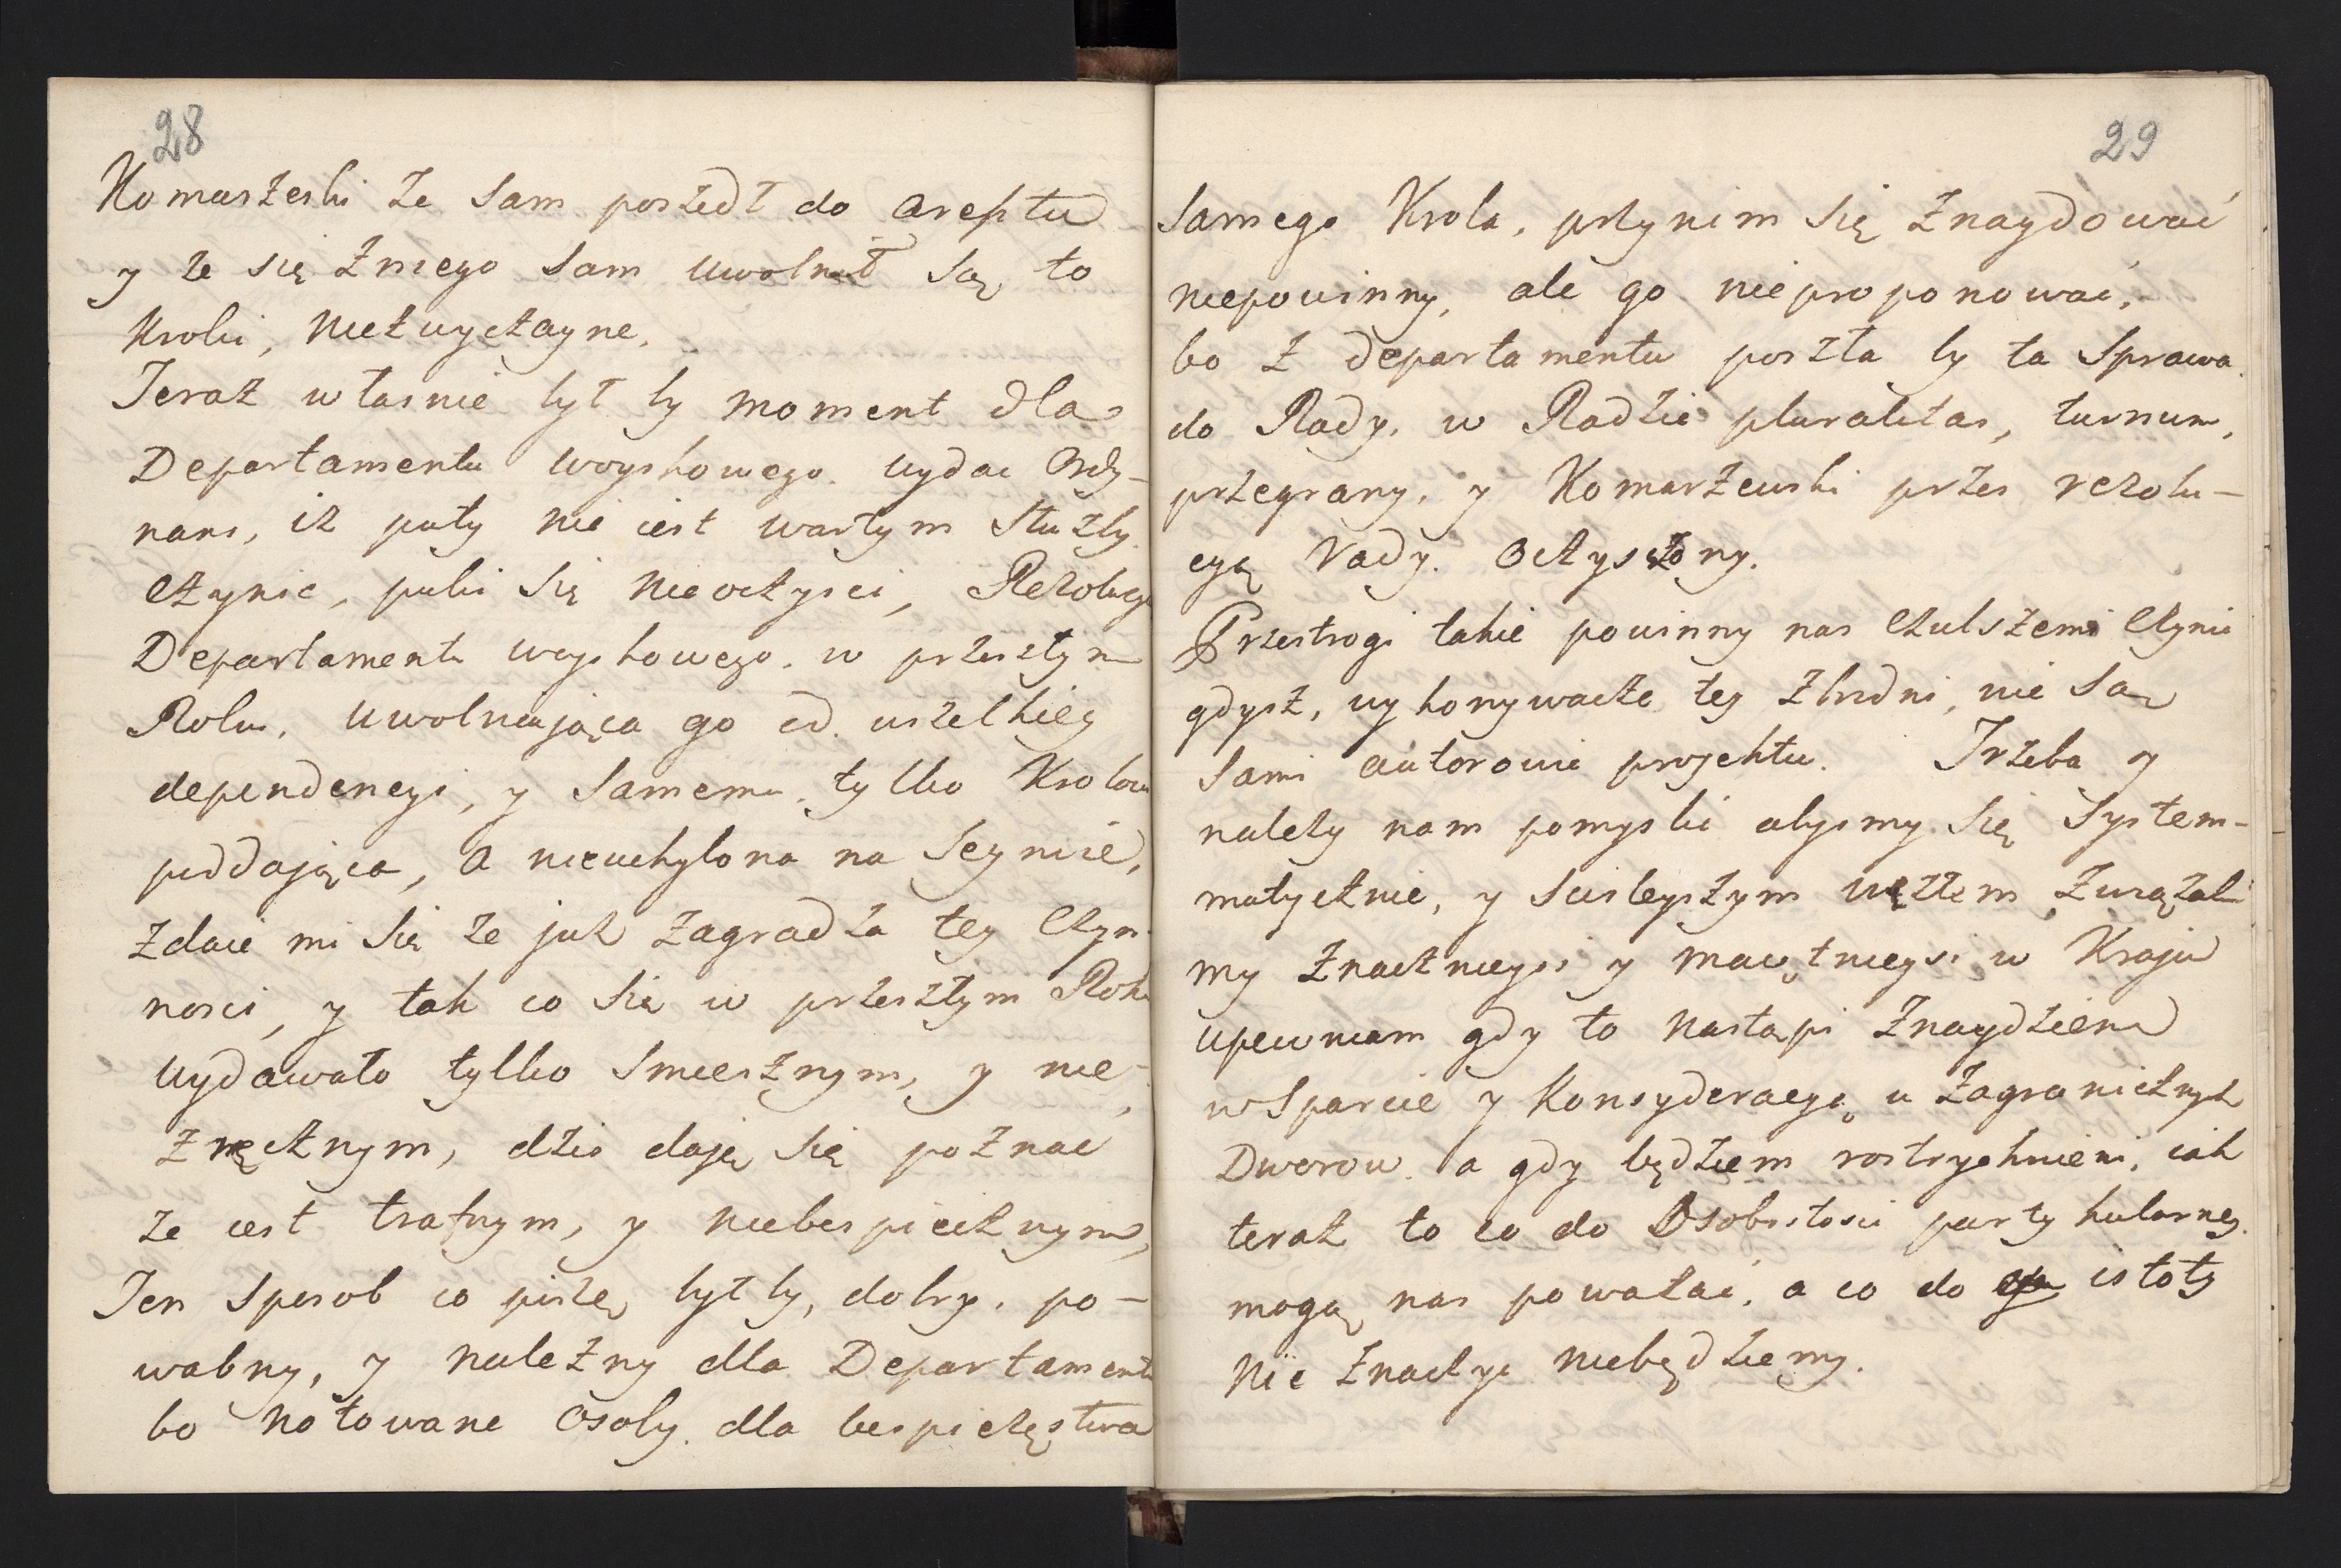 28
Komarzeski że sam poszedł do aresztu
y że się zniego sam uwolnił są to
Kroki, niezwyczayne.
Teraz właśnie był by moment dla
Departamentu woyskowego. wydac Ordy-
nans, iż puty nie iest wartym służby
czynic, puki się nieoczysci, Rezolucya
Departamentu woyskowego. w przeszłym
Roku, uwolniająca go od. wszelkiey
dependencyi, y samemu tylko Krolowi
poddająca, a nieuchylona na Seymie,
zdaie mi się że już zagradza tey czyn-
nosci, y tak co się w przeszłym Roku
wydawało tylko smiesznym, y nie-
zręcznym, dziś daje się poznac
że iest trafnym, y niebespiecznym,
Ten sposob co piszę był by, dobry. po-
wabny, y należny dla Departamentu
bo notowane osoby. dla bespieczęstwa
29
samego Krola, przynim się znaydować
niepowinny, ale go nieproponować,
bo z departamentu poszła by ta sprawa
do Rady. w Radzie pluralitas, turnum,
przegrany. y Komarzewski przes rezolu-
cyą Rady. oczyszczony.
Przestrogi takie powinny nas czulszemi czynic
gdysz, wykonywacze tey zbrodni, nie są
sami autorowie projektu. Trzeba y
należy nam pomyslić abysmy się system-
matycznie, y scisleyszym węzłem związali
my znacznieysi y maiętnieysi w Kraju
upewniam gdy to nastąpi znaydziem
wsparcie y konsyderacyą u zagranicznych
Dworow. a gdy będziem rostrychnieni, iak
teraz to co do Osobistosci partykularney.
mogą nas poważać, a co do istoty
nic znaczyc niebędziemy.